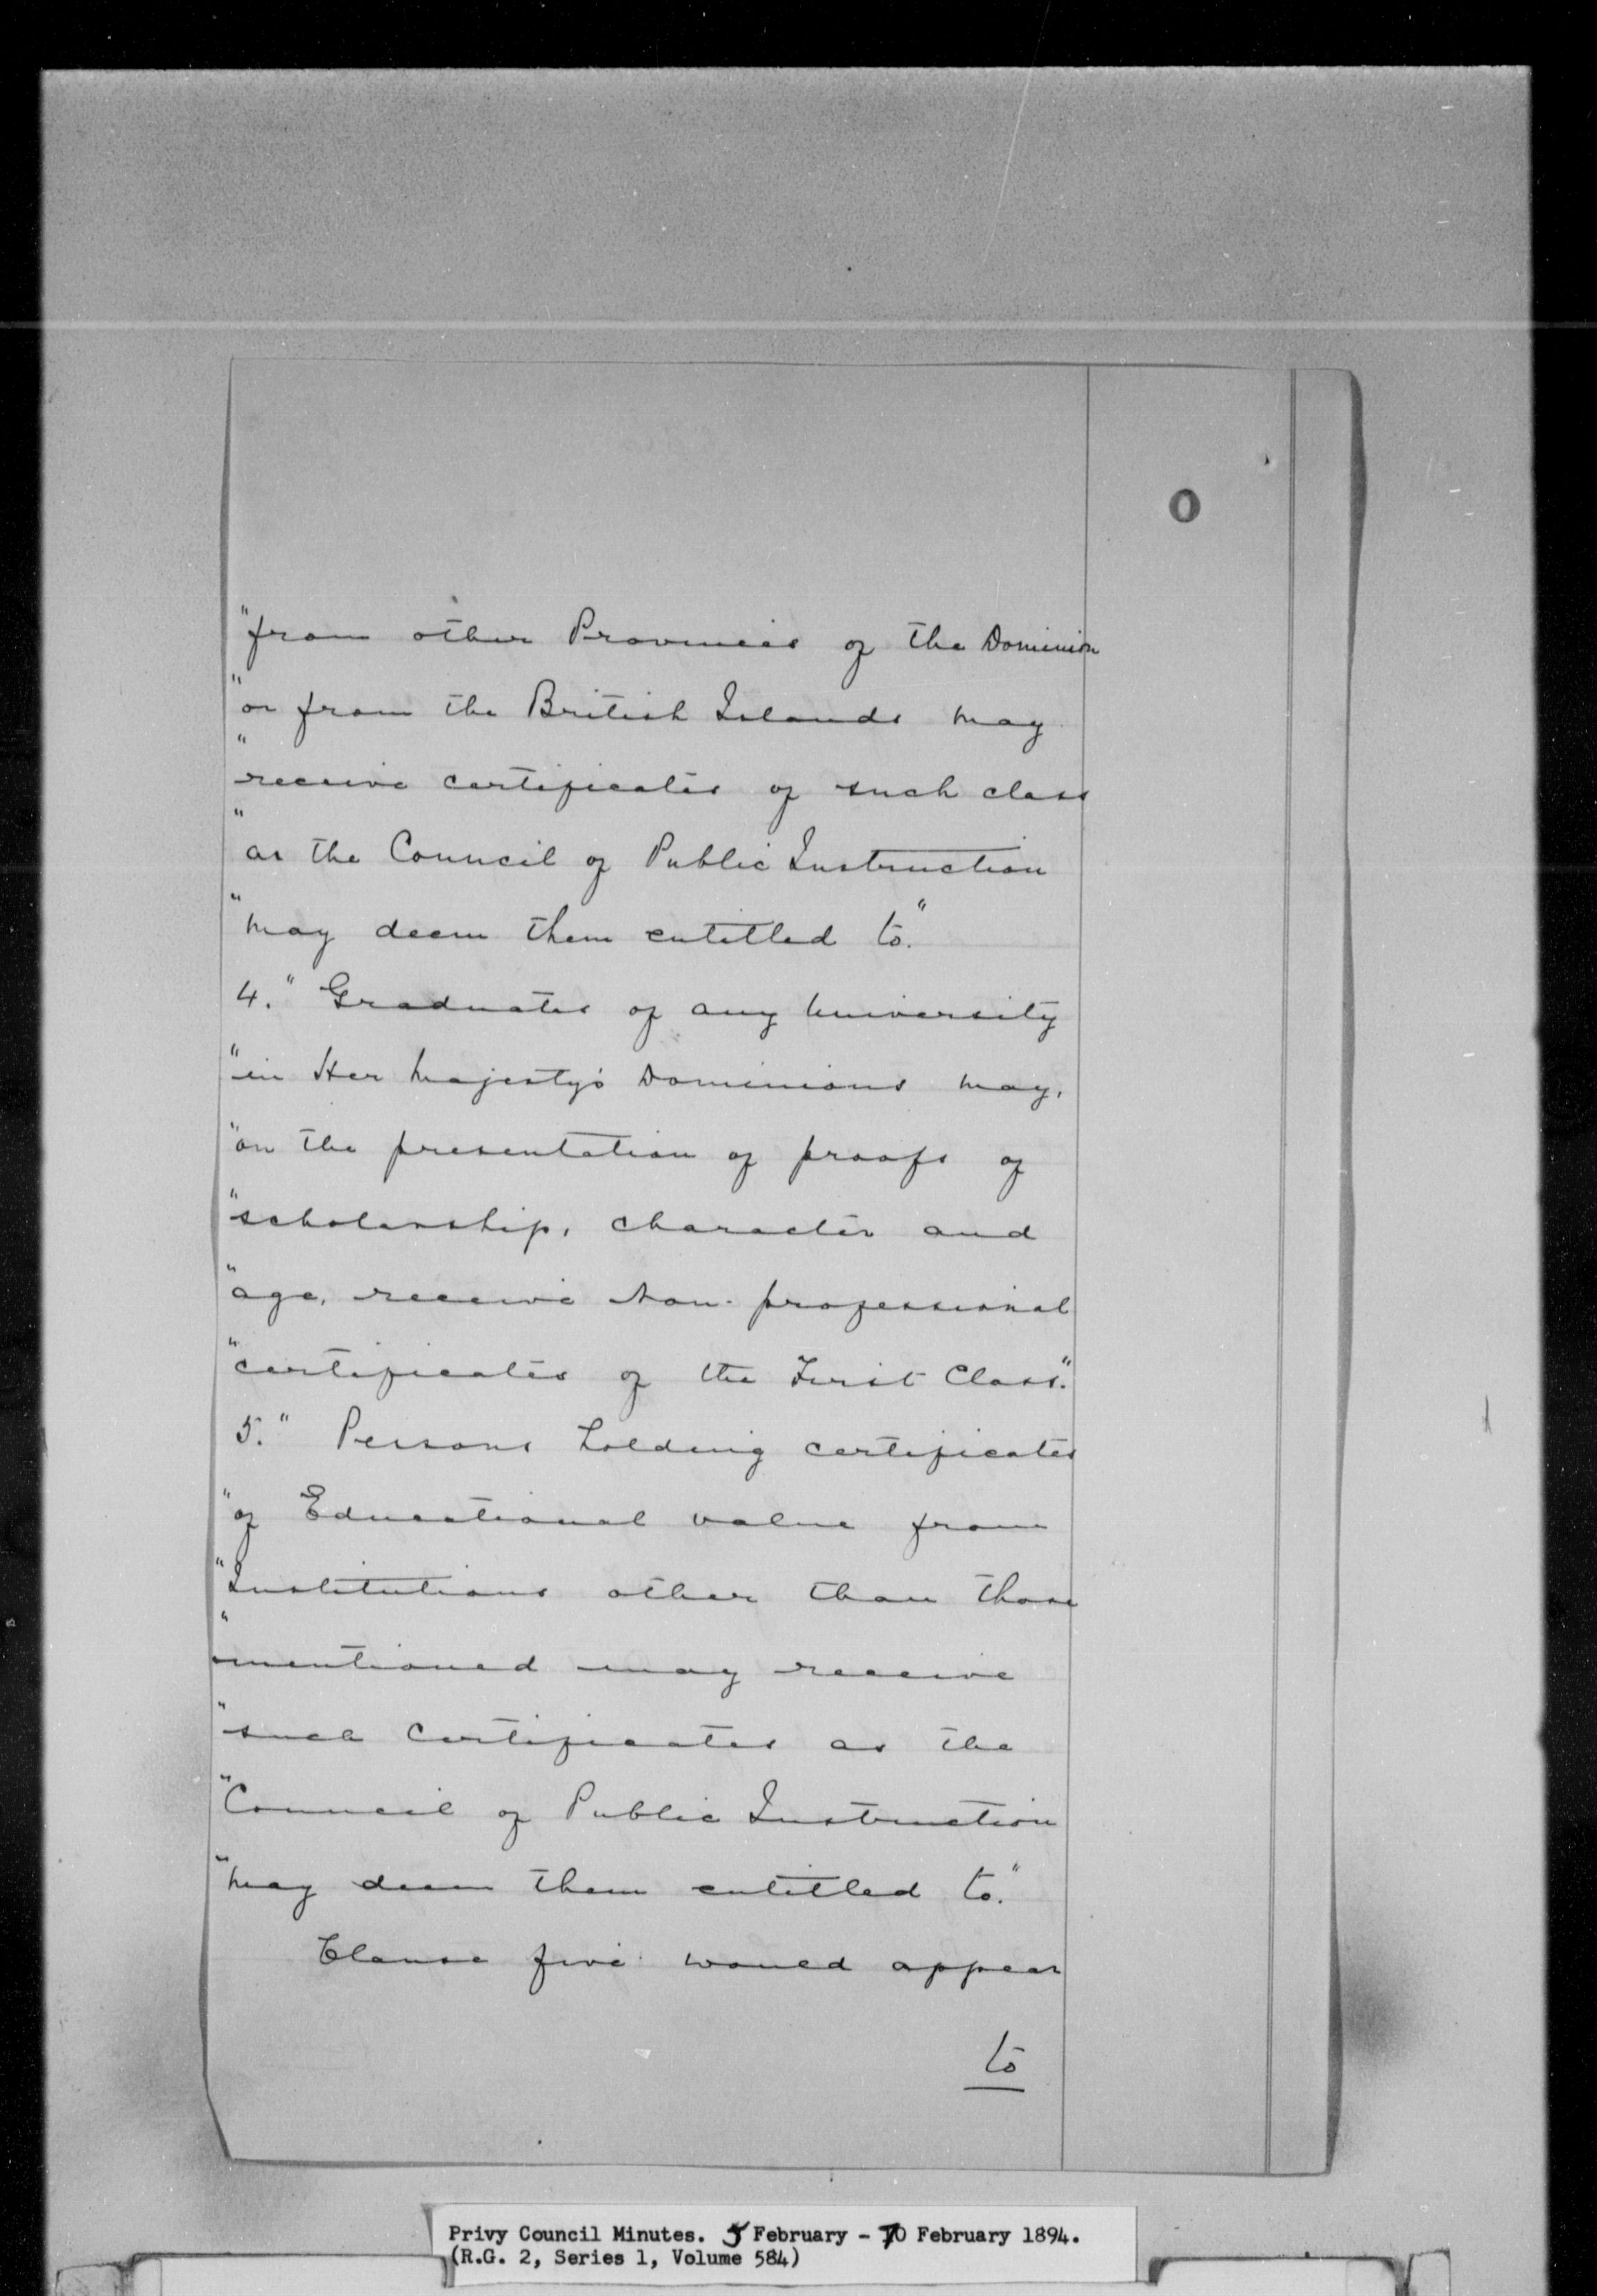 O
"from other Provinces of the Dominion
"or from the British Islands may
"receive certificates of such class
"as the Council of Public Instruction
"may deem them entitled to."
4. "Graduates of any University
"in Her Majesty's Dominions may,
"on the presentation of proofs of
"scholarship, character and
"age, receive Non-professional
"certificates of the First Class."
5. "Persons holding certificates
"of Educational value from
"Institutions other than those
"mentioned may receive
"such Certificates as the
"Council of Public Instruction
"may deem them entitled to."
Clause five would appear
to
Privy Council Minutes. 5 February - 10 February 1894.
(R.G. 2, Series 1, Volume 584)